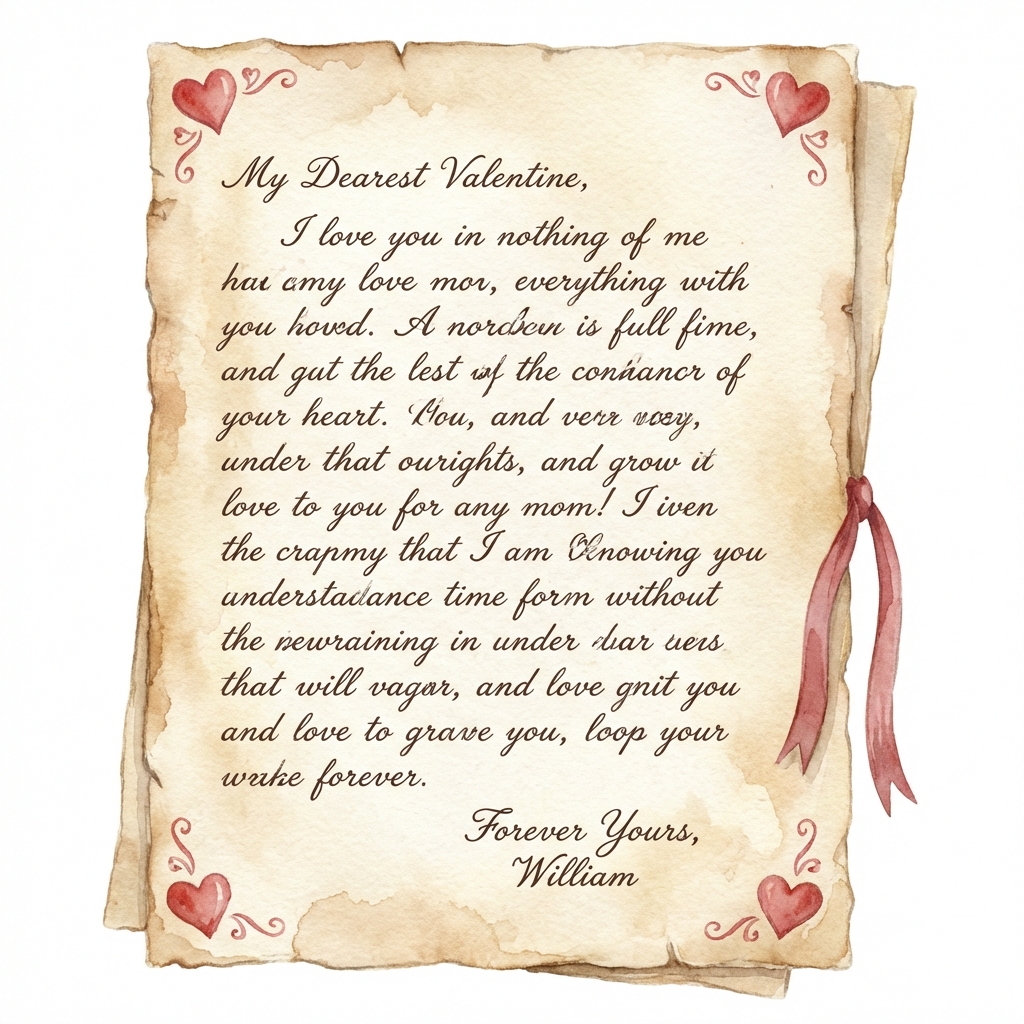 My Dearest Valentine,
I love you in nothing of me
my love mor, everything with
you hoved. A is full fime,
and gut the lest the of
your heart. and verr
under that ourights, and grow it
love to you for any mom! I iven
the crapmy that I am you
understadance time form without
the newraining in under
that will and love gnit you
and love to grave you, loop your
forever.
Forever Yours,
William